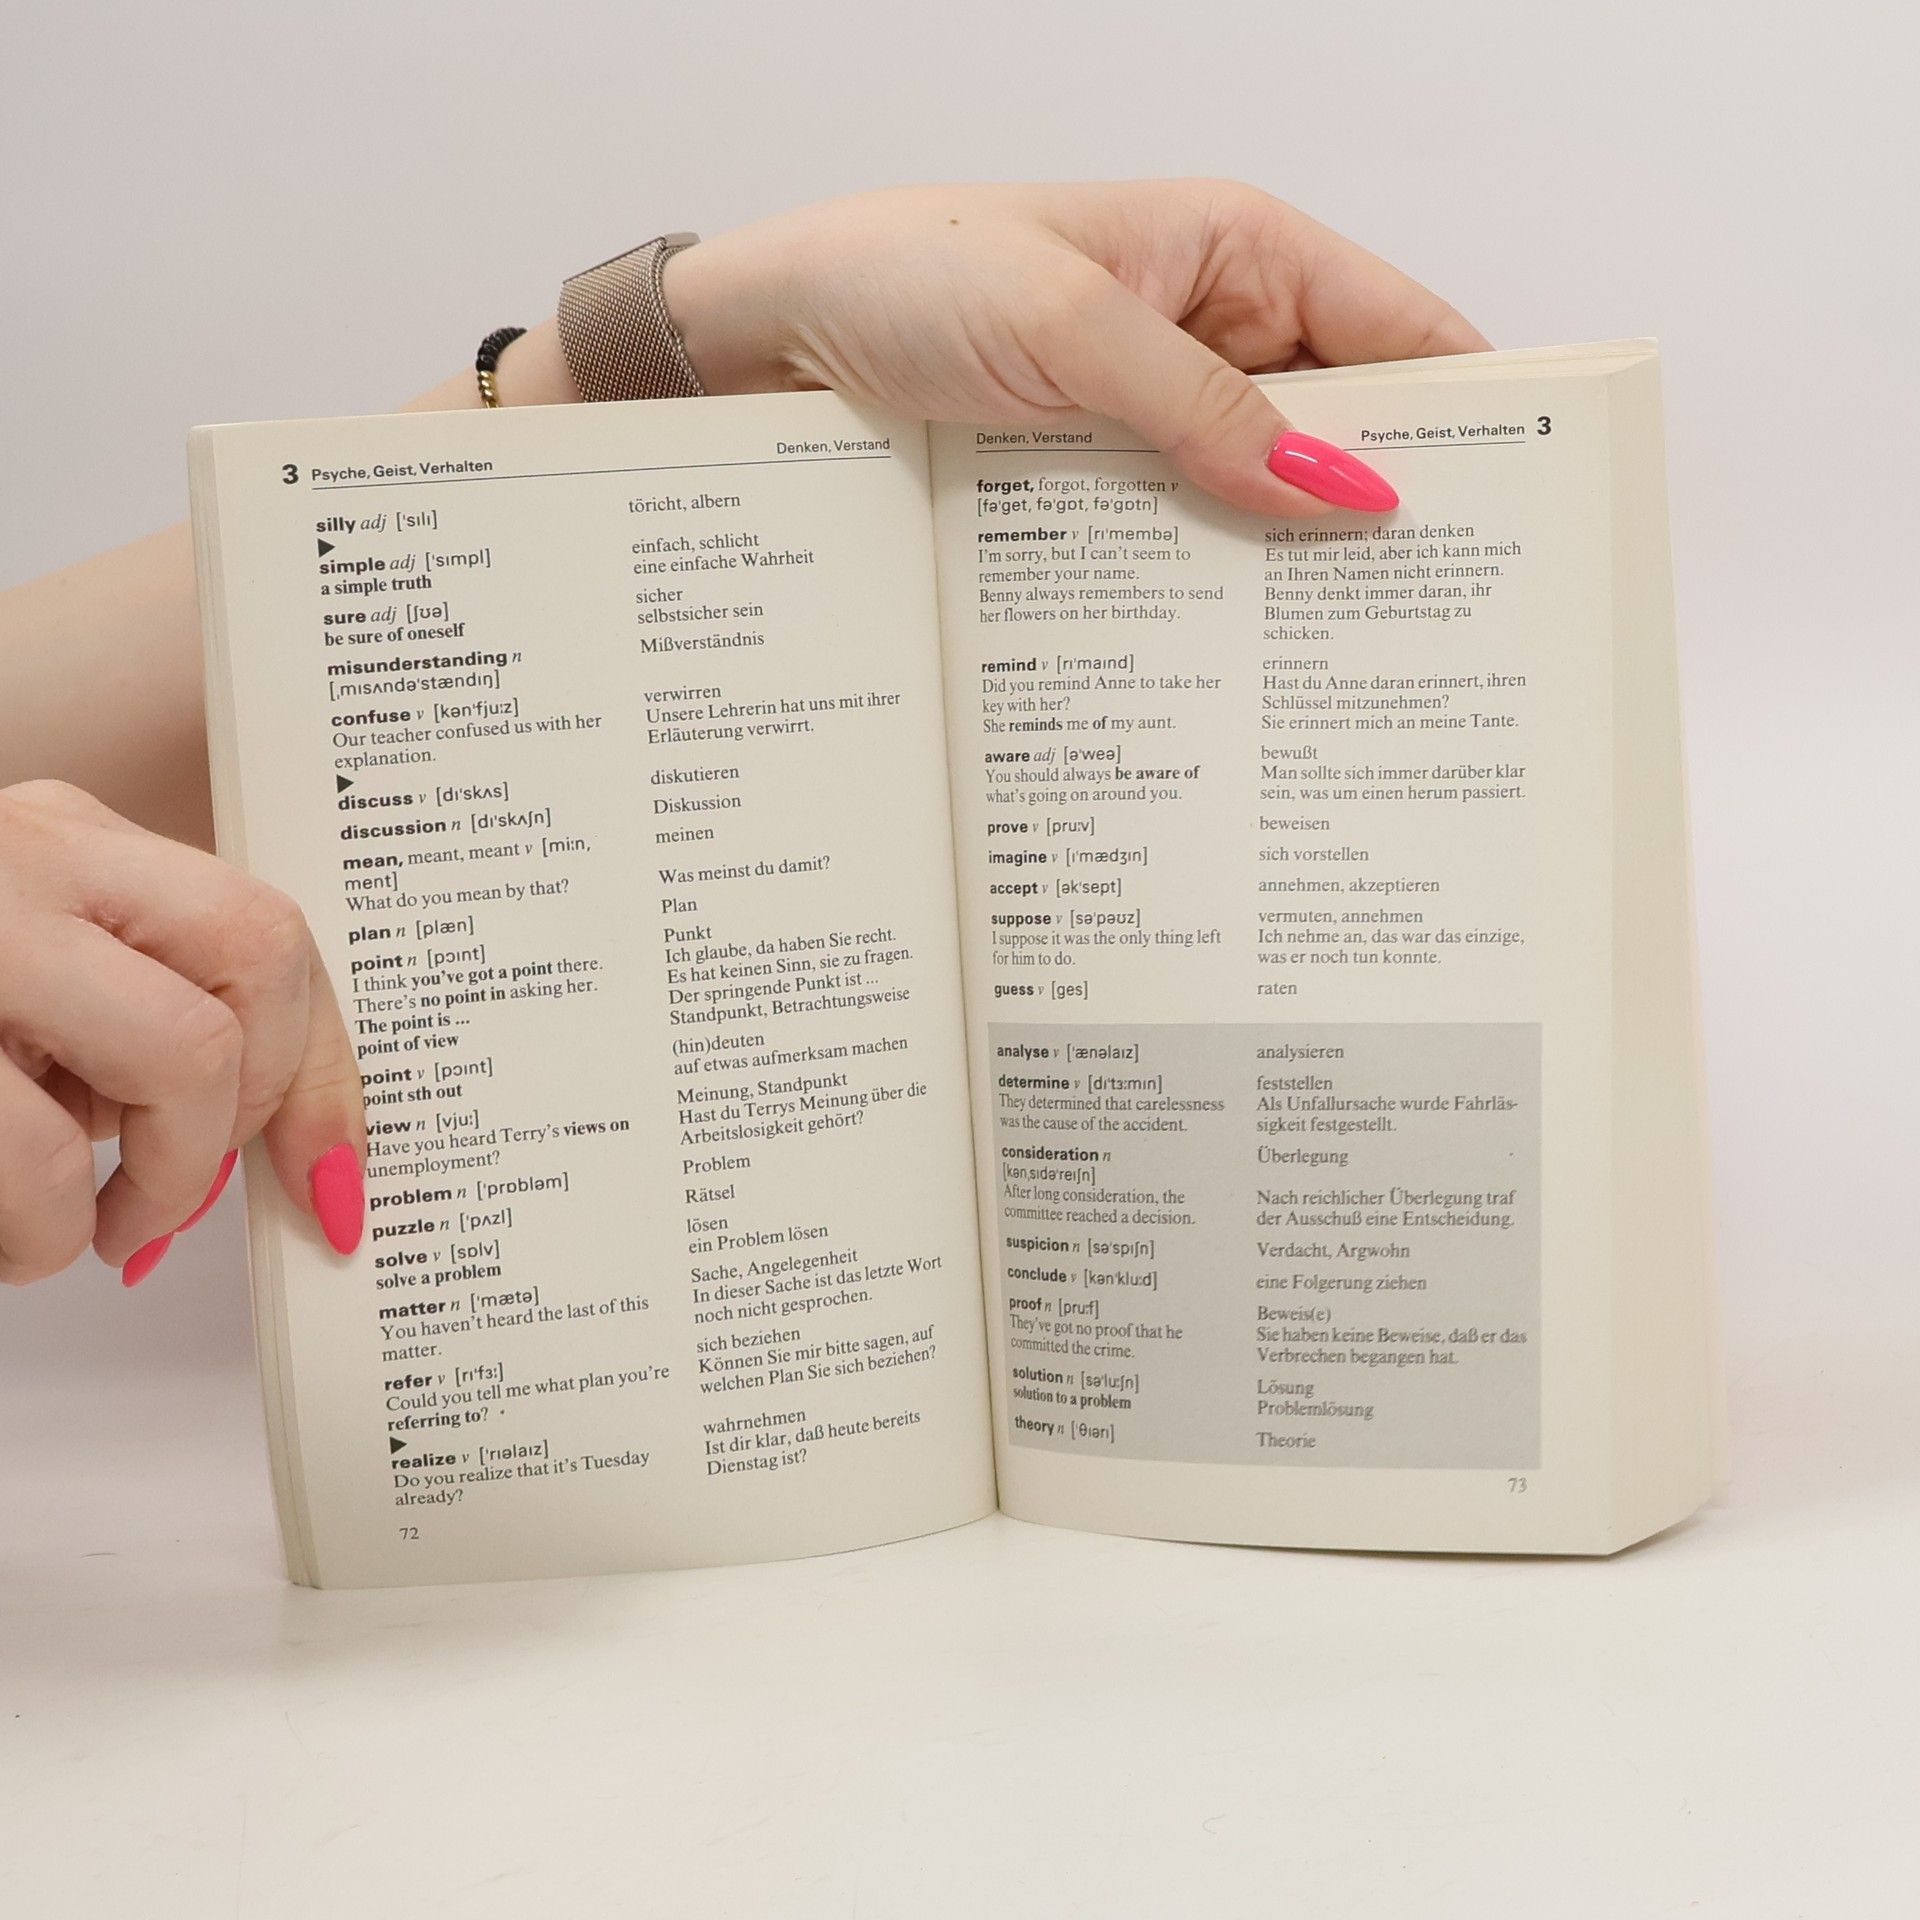 3 Psyche, Geist, Verhalten
Denken, Verstand
silly adj [ˈsɪlɪ]
töricht, albern
▶
simple adj [ˈsɪmpl]
einfach, schlicht
a simple truth
eine einfache Wahrheit
sure adj [ʃʊə]
sicher
be sure of oneself
selbstsicher sein
misunderstanding n
Mißverständnis
[ˌmɪsʌndəˈstændɪŋ]
confuse v [kənˈfjuːz]
verwirren
Our teacher confused us with her
Unsere Lehrerin hat uns mit ihrer
explanation.
Erläuterung verwirrt.
▶
discuss v [dɪˈskʌs]
diskutieren
discussion n [dɪˈskʌʃn]
Diskussion
mean, meant, meant v [miːn,
meinen
ment]
What do you mean by that?
Was meinst du damit?
plan n [plæn]
Plan
point n [pɔɪnt]
Punkt
I think you've got a point there.
Ich glaube, da haben Sie recht.
There's no point in asking her.
Es hat keinen Sinn, sie zu fragen.
The point is ...
Der springende Punkt ist ...
point of view
Standpunkt, Betrachtungsweise
point v [pɔɪnt]
(hin)deuten
point sth out
auf etwas aufmerksam machen
view n [vjuː]
Meinung, Standpunkt
Have you heard Terry's views on
Hast du Terrys Meinung über die
unemployment?
Arbeitslosigkeit gehört?
problem n [ˈprɒbləm]
Problem
puzzle n [ˈpʌzl]
Rätsel
solve v [sɒlv]
lösen
solve a problem
ein Problem lösen
matter n [ˈmætə]
Sache, Angelegenheit
You haven't heard the last of this
In dieser Sache ist das letzte Wort
matter.
noch nicht gesprochen.
refer v [rɪˈfɜː]
sich beziehen
Could you tell me what plan you're
Können Sie mir bitte sagen, auf
referring to?
welchen Plan Sie sich beziehen?
▶
realize v [ˈrɪəlaɪz]
wahrnehmen
Do you realize that it's Tuesday
Ist dir klar, daß heute bereits
already?
Dienstag ist?
72
Denken, Verstand
Psyche, Geist, Verhalten 3
forget, forgot, forgotten v
[fəˈget, fəˈgɒt, fəˈgɒtn]
remember v [rɪˈmembə]
sich erinnern; daran denken
I'm sorry, but I can't seem to
Es tut mir leid, aber ich kann mich
remember your name.
an Ihren Namen nicht erinnern.
Benny always remembers to send
Benny denkt immer daran, ihr
her flowers on her birthday.
Blumen zum Geburtstag zu
schicken.
remind v [rɪˈmaɪnd]
erinnern
Did you remind Anne to take her
Hast du Anne daran erinnert, ihren
key with her?
Schlüssel mitzunehmen?
She reminds me of my aunt.
Sie erinnert mich an meine Tante.
aware adj [əˈweə]
bewußt
You should always be aware of
Man sollte sich immer darüber klar
what's going on around you.
sein, was um einen herum passiert.
prove v [pruːv]
beweisen
imagine v [ɪˈmædʒɪn]
sich vorstellen
accept v [əkˈsept]
annehmen, akzeptieren
suppose v [səˈpəʊz]
vermuten, annehmen
I suppose it was the only thing left
Ich nehme an, das war das einzige,
for him to do.
was er noch tun konnte.
guess v [ges]
raten
analyse v [ˈænəlaɪz]
analysieren
determine v [dɪˈtɜːmɪn]
feststellen
They determined that carelessness
Als Unfallursache wurde Fahrläs-
was the cause of the accident.
sigkeit festgestellt.
consideration n
Überlegung
[kənˌsɪdəˈreɪʃn]
After long consideration, the
Nach reichlicher Überlegung traf
committee reached a decision.
der Ausschuß eine Entscheidung.
suspicion n [səˈspɪʃn]
Verdacht, Argwohn
conclude v [kənˈkluːd]
eine Folgerung ziehen
proof n [pruːf]
Beweis(e)
They've got no proof that he
Sie haben keine Beweise, daß er das
committed the crime.
Verbrechen begangen hat.
solution n [səˈluːʃn]
Lösung
solution to a problem
Problemlösung
theory n [ˈθɪərɪ]
Theorie
73